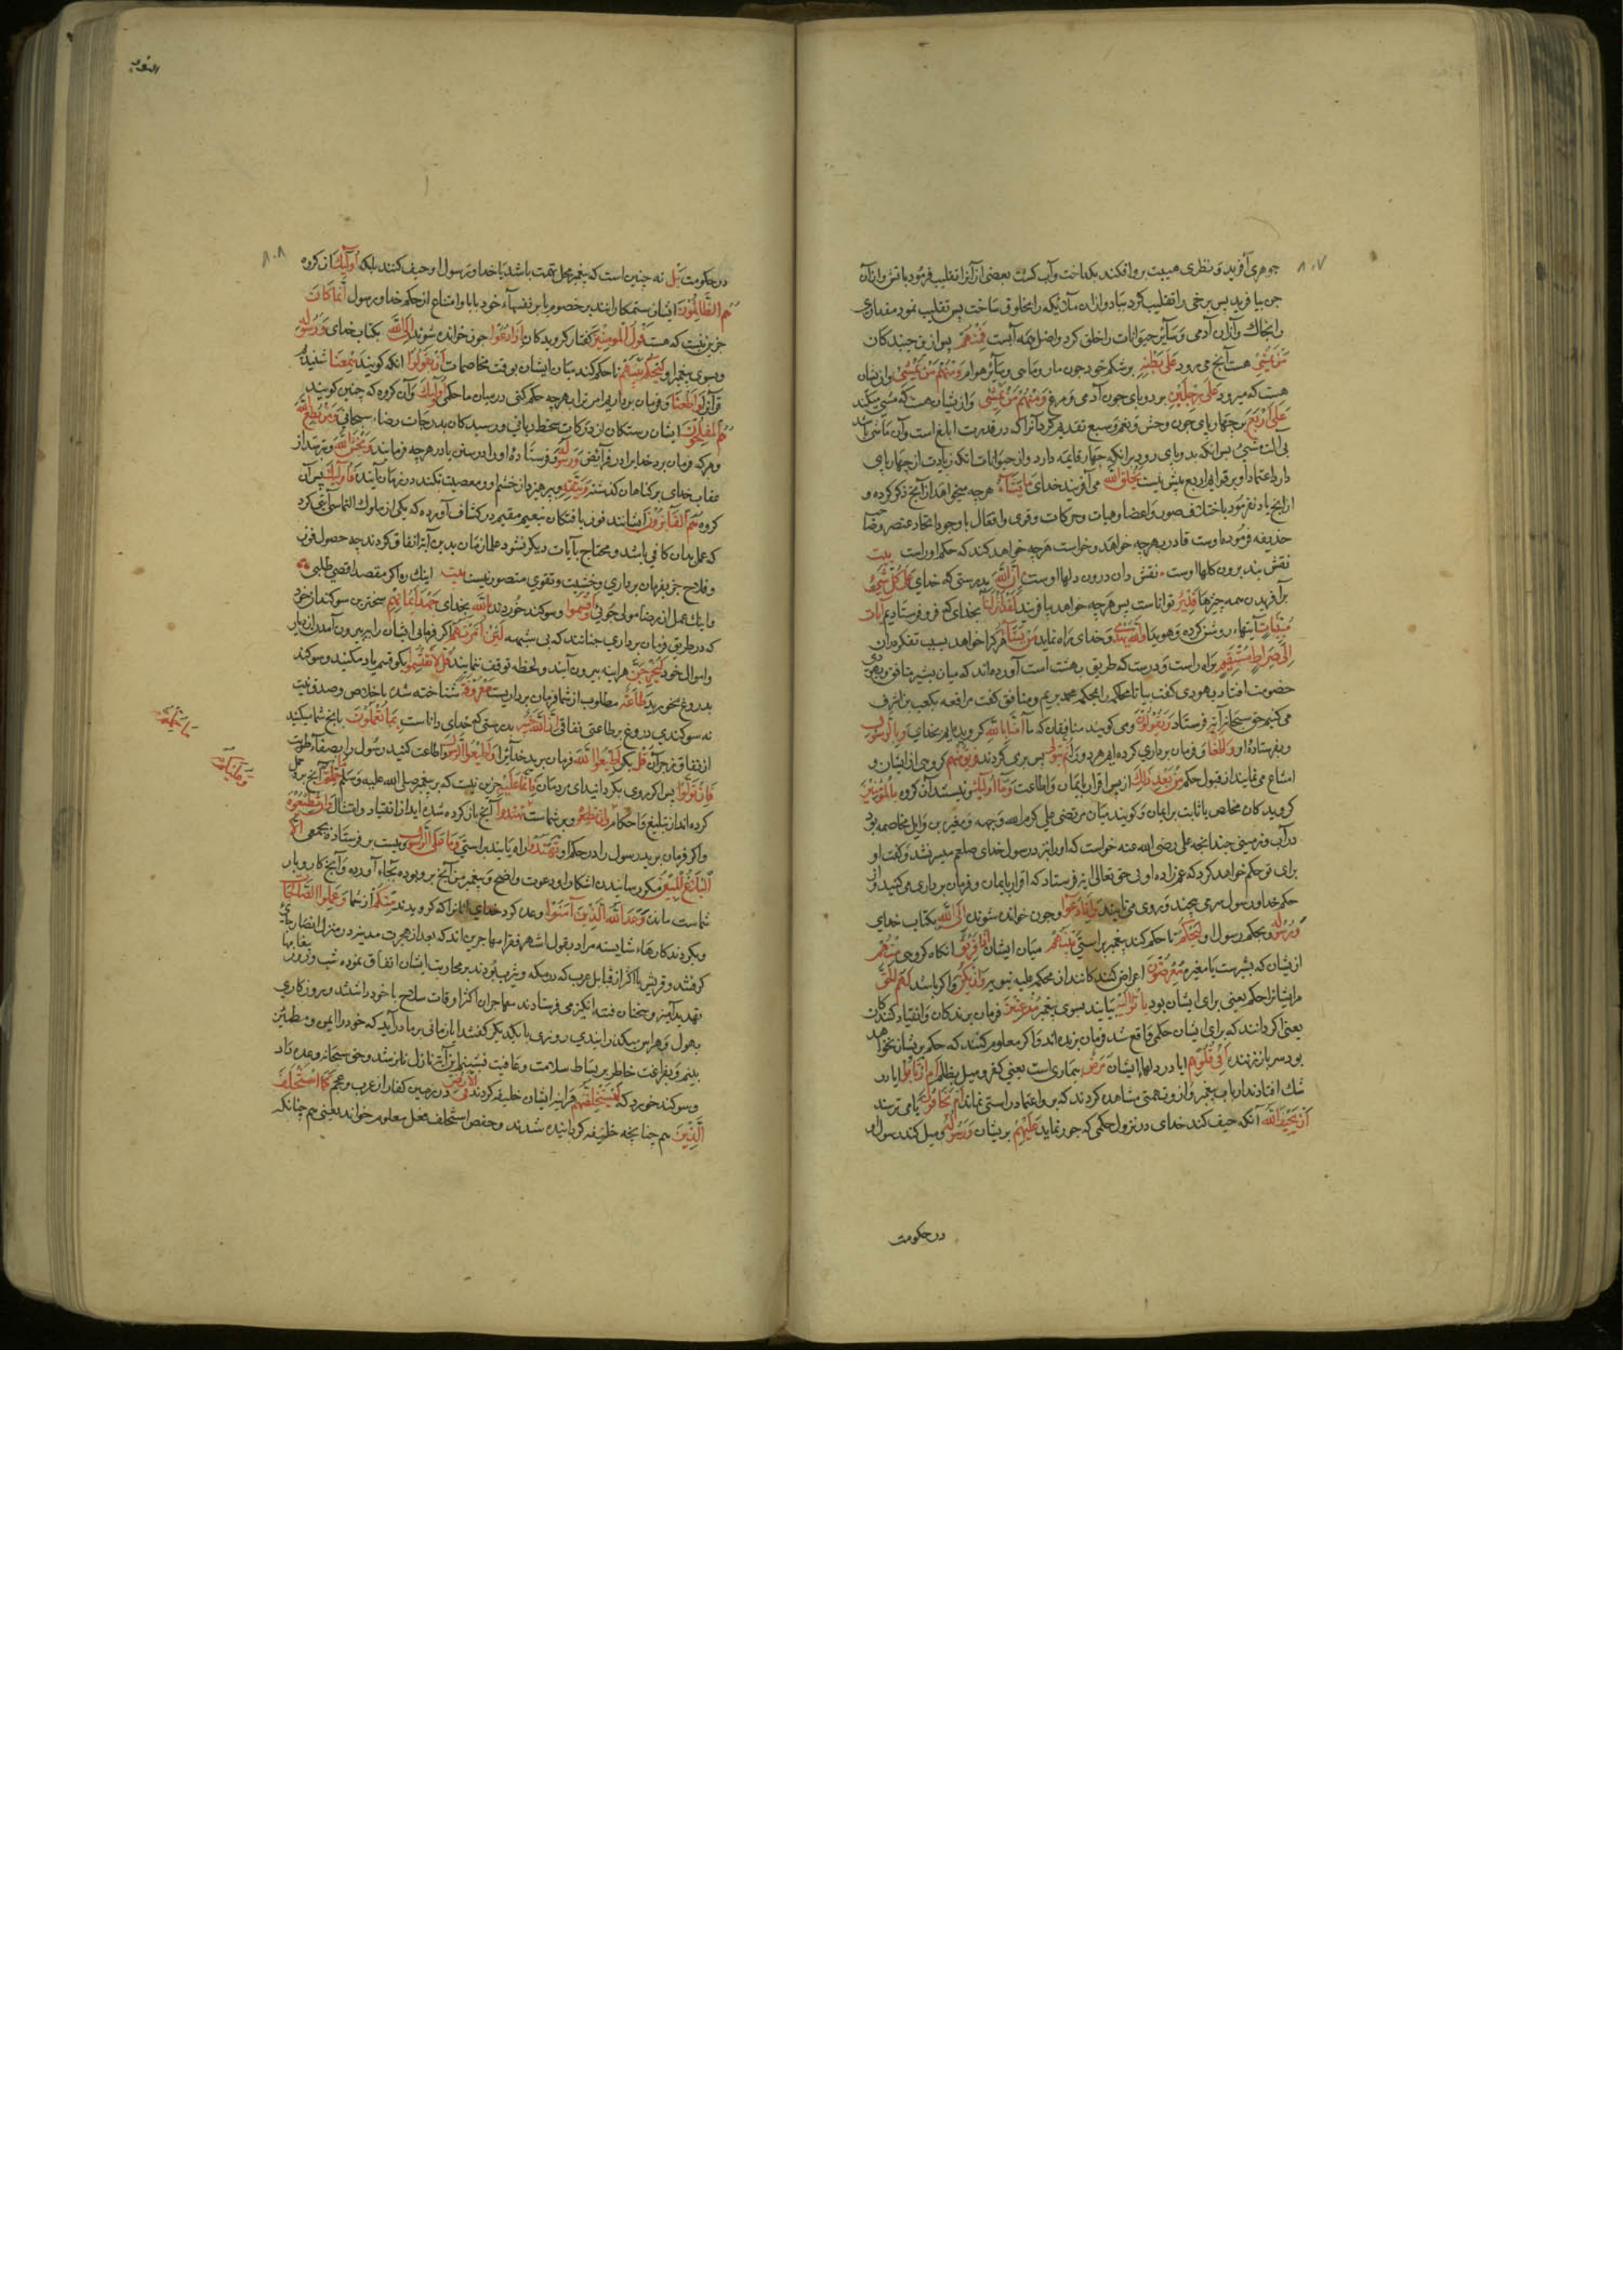 ۸۰۷
جوهری آفرید و بنظری هیبت برو افکند بکداخت و آب کشت بعضی از آنرا تقلیب فرمود باتش و ازان
جن بیافرید پس برخی را تقلیب کرد بباد و ازان ملائیکه را مخلوق ساخت پس تقلیب نمود مقداری
را بخاک و ازان آدمی و سآیر حیوانات را خلق کرد و اصل همه آبست فَمِنْهُمْ پس از جنبندکان
مَّن یَمْشِی هست آنچ می رود عَلَی بَطْنِهِ بر شکم خود چون مار و ماهی و سآیر هوام وَمِنْهُمْ مَّن یَمْشِی و از یشان
هست که میرود عَلَی رِجْلَیْنِ بر دو پای چون آدمی و مرغ وَمِنْهُمْ مَّن یَمْشِی و از یشان هست که مشی میکند
عَلَی أَرْبَعٍ بر چهار پای چون وحش و نعم و سبع تقدیم کرد آنرا که در قدرت ابلغ است و آن ماشی باشد
بی آلت مشی پس انکه بدو پای رود پس انکه چهار قایمه دارد و از حیوانات انکه زیادت از چهار پای
دارد اعتماد او بر قوایم اربع بیش نیست یَخْلُقُ اللّٰهُ می آفریند خدای مَا یَشَاءُ هرچه میخواهد از آنچ ذکر کرده و
ازانچ یاد نفرمود باختلاف صور و اعضا و هیات و حرکات و قوی و افعال با وجود اتحاد عنصر
حذیفه فرموده اوست قادر بهرچه خواهد و خواست هرچه خواهد کند که حکم اوراست بیت
نقش بند برون کلها اوست نقش دان درون دلها اوست إِنَّ اللّٰهَ بدرستی که خدای عَلَی کُلِّ شَیْءٍ
بر آفریدن همه چیزها قَدِیرٌ تواناست پس هرچه خواهد بیافریند لَقَدْ أَنزَلْنَا بخدای که فرو فرستادیم آیَاتٍ
مُّبَیِّنَاتٍ آیتهاء روشن کرده و هویدا وَاللّٰهُ یَهْدِی و خدای راه نماید مَن یَشَاءُ هر کرا خواهد بسبب تفکر دران
إِلَی صِرَاطٍ مُّسْتَقِیمٍ براه راست و درست که طریق بهشت است آورده اند که میان بشیر منافق و یهودی
خصومت افتاد یهودی کفت بیا تا محاکمه را بحکم محمد بریم و منافق کفت مرافعه بکعب بن اشرف
می کنیم حق سبحانه آیه فرستاد وَیَقُولُونَ و می کویند منافقان که ما آمَنَّا بِاللّٰهِ کرویده ایم بخدای وَبِالرَّسُولِ
و بفرستاده او وَأَطَعْنَا و فرمان برداری کرده ایم هر دو را ثُمَّ یَتَوَلَّی پس برمی کردند فَرِیقٌ مِّنْهُم کروهی از ایشان و
امتناع می نمایند از قبول حکم مِّن بَعْدِ ذَلِکَ از پس اقرار بایمان و اطاعت وَمَا أُولَئِکَ و نیستند آن کروه بِالْمُؤْمِنِینَ
کرویدکان مخلص یا ثابت بر ایمان و کویند میان مرتضی علی کرم الله وجهه و مغیره بن وایل مخاصمه بود
در آب و زمینی چندانچه علی رضی الله عنه خواست که اورا بنزد رسول خدای صلعم میسر نشد و کفت او
برای تو حکم خواهد کرد که عمزاده اوئی حق تعالی آیه فرستاد که اقرار بایمان و فرمان برداری می کنید
حکم خدا و رسول سرمی پیچند و روی می تابند وَإِذَا دُعُوا و چون خوانده شوند إِلَی اللّٰهِ بکتاب خدای
وَرَسُولِهِ و بحکم رسول او لِیَحْکُمَ تا حکم کند پیغمبر براستی بَیْنَهُمْ میان ایشان إِذَا فَرِیقٌ انکاه کروهی مِّنْهُم
از یشان که بشرست یا مغیره مُّعْرِضُونَ اعراض کنندکانند از محاکمه علیه پیغمبر وَإِن یَکُن و اکر باشد لَّهُمُ الْحَقُّ
مر ایشانرا حکم یعنی برای ایشان بود یَأْتُوا إِلَیْهِ بیایند بسوی پیغمبر مُذْعِنِینَ فرمان برندکان و انقیاد کنندکان
یعنی اکر دانند که برای ایشان حکمی واقع شد فرمان برنده اند و اکر معلوم کنند که حکم بر یشان خواهد
بود سر باز زنند أَفِی قُلُوبِهِم ایا در دلهای ایشان مَّرَضٌ بیماری است یعنی کفر و میل بظلم أَمِ ارْتَابُوا یا در
شک افتادند از یاب پیغمبر و ازو تهمتی مشاهده کردند که برو اعتماد راستی نماند أَمْ یَخَافُونَ یا می ترسند
أَن یَحِیفَ اللّٰهُ آنکه حیف کند خدای در نزول حکمی که جور نماید عَلَیْهِمْ بر یشان وَرَسُولُهُ و میل کند رسول او
در حکومت
النور
۸۰۸
در حکومت بَلْ نه چنین است که پیغمبر محل تهمت باشد یا خدا و رسول او حیف کنند بلکه أُولَئِکَ آن کروه
هُمُ الظَّالِمُونَ ایشان ستمکارانند بر خصوم یا بر نفسهاء خود بابا و امتناع از حکم خدا و رسول إِنَّمَا کَانَ
جز این نیست که هست قَوْلَ الْمُؤْمِنِینَ کفتار کرویدکان إِذَا دُعُوا چون خوانده شوند إِلَی اللّٰهِ بکتاب خدای وَرَسُولِهِ
و بسوی پیغمبر او لِیَحْکُمَ بَیْنَهُمْ تا حکم کند میان ایشان بوقت مخاصمات أَن یَقُولُوا انکه کویند سَمِعْنَا شنیدیم
قرآنرا وَأَطَعْنَا و فرمان برداریم امر ترا بهرچه حکم کنی در میان ما وَأُولَئِکَ و آن کروه که چنین کویند
هُمُ الْمُفْلِحُونَ ایشان رستکان از درکات سخط ربانی و رسیدکان بدرجات رضاء سبحانی وَمَن یُطِعِ اللّٰهَ
و هرکه فرمان برد خدایرا در فرآئض وَرَسُولَهُ و فرستاده اورا در سنن یا در هرچه فرمایند وَیَخْشَ اللّٰهَ و بترسد از
عقاب خدای بر کناهان کذشته وَیَتَّقْهِ و بپرهیزد از خشم او و معصیت نکند در زمان آینده فَأُولَئِکَ پس آن
کروه هُمُ الْفَائِزُونَ ایشانند فوز یافتکان بنعیم مقیم در کشاف آورده که یکی از ملوک التماس آیتی کرد
که عمل بدان کافی باشد و محتاج بآیات دیکر نشود علماء زمان بدین آیه اتفاق کردند چه حصول فوز
و فلاح جز بفرمان برداری و خشیت و تقوی متصور نیست بیت اینک ره اکر مقصد اقصی طلبی
و اینک عمل ار رضاء مولی جوئی وَأَقْسَمُوا و سوکند خوردند بِاللّٰهِ بخدای جَهْدَ أَیْمَانِهِمْ سختترین سوکند از خود
که در طریق فرمان برداری چنانند که بی شبهه لَئِنْ أَمَرْتَهُمْ اکر فرمائی ایشان را به بیرون آمدن از دیار
و اموال خود لَیَخْرُجُنَّ هراینه بیرون آیند و لحظه توقف ننمایند قُل لَّا تُقْسِمُوا بکو قسم یاد مکنید و سوکند
بدروغ مخورید طَاعَةٌ مطلوب از شما فرمان برداریست مَّعْرُوفَةٌ شناخته شده باخلاص و صدق نیت
نه سوکندی دروغ بر طاعتی نفاقی إِنَّ اللّٰهَ خَبِیرٌ بدرستی که خدای داناست بِمَا تَعْمَلُونَ بانچ شما میکنید
از نفاق و جز آن قُلْ بکو أَطِیعُوا اللّٰهَ فرمان برید خدایرا وَأَطِیعُوا الرَّسُولَ و اطاعت کنید رسول را بصفاء طویت
فَإِن تَوَلَّوْا پس اکر روی بکردانید ای مردمان فَإِنَّمَا عَلَیْهِ جز این نیست که بر پیغمبر صلی الله علیه و سلم مَا حُمِّلَ آنچ برو حمل
مَا حُمِّلَ
وَعَلَیْکُم
کرده اند از تبلیغ و احکام و بر شماست مَّا حُمِّلْتُمْ آنچ بار کرده شده اید از انقیاد و امتثال وَإِن تُطِیعُوهُ
و اکر فرمان برید رسول را در حکم او تَهْتَدُوا راه یابید براستی وَمَا عَلَی الرَّسُولِ و نیست بر فرستاده إِلَّا
الْبَلَاغُ الْمُبِینُ مکر رسانیدن اشکارا و دعوت واضح و پیغمبر من آنچ برو بود بجاء آورد و آنچ کار و بار
شماست مانده وَعَدَ اللّٰهُ الَّذِینَ آمَنُوا وعده کرد خدای انانرا که کرویدند مِنکُمْ از شما وَعَمِلُوا الصَّالِحَاتِ
و بکردند کارهاء شایسته مراد بقول اشهر فقراء مهاجرین اند که بعد از هجرت مدینه در منزل انصار جای
کرفتند و قریش با اکثر از قبایل عرب که در مکه و یثرب بودند بر محاربت ایشان اتفاق نموده شب و روز
تهدیدآمیز و سخنان فتنه انکیز می فرستادند مهاجران اکثر اوقات سلاح با خود داشتند و روزکاری
بهول و هراس میکذرانیدی روزی با یکدیکر کفتند ایا زمانی بر ما درآید که خود را ایمن و مطمئن
بینیم و بفراغت خاطر بر بساط سلامت و عافیت نشینیم این آیه نازل شد و حق سبحانه وعده داد
و سوکند خورد که لَیَسْتَخْلِفَنَّهُمْ هراینه ایشان خلیفه کرداند فِی الْأَرْضِ در زمین کفار از عرب و عجم کَمَا اسْتَخْلَفَ
الَّذِینَ هم چنانچه خلیفه کردانیده شدند و حفص استخلف فعل معلوم خواند یعنی هم چنانکه